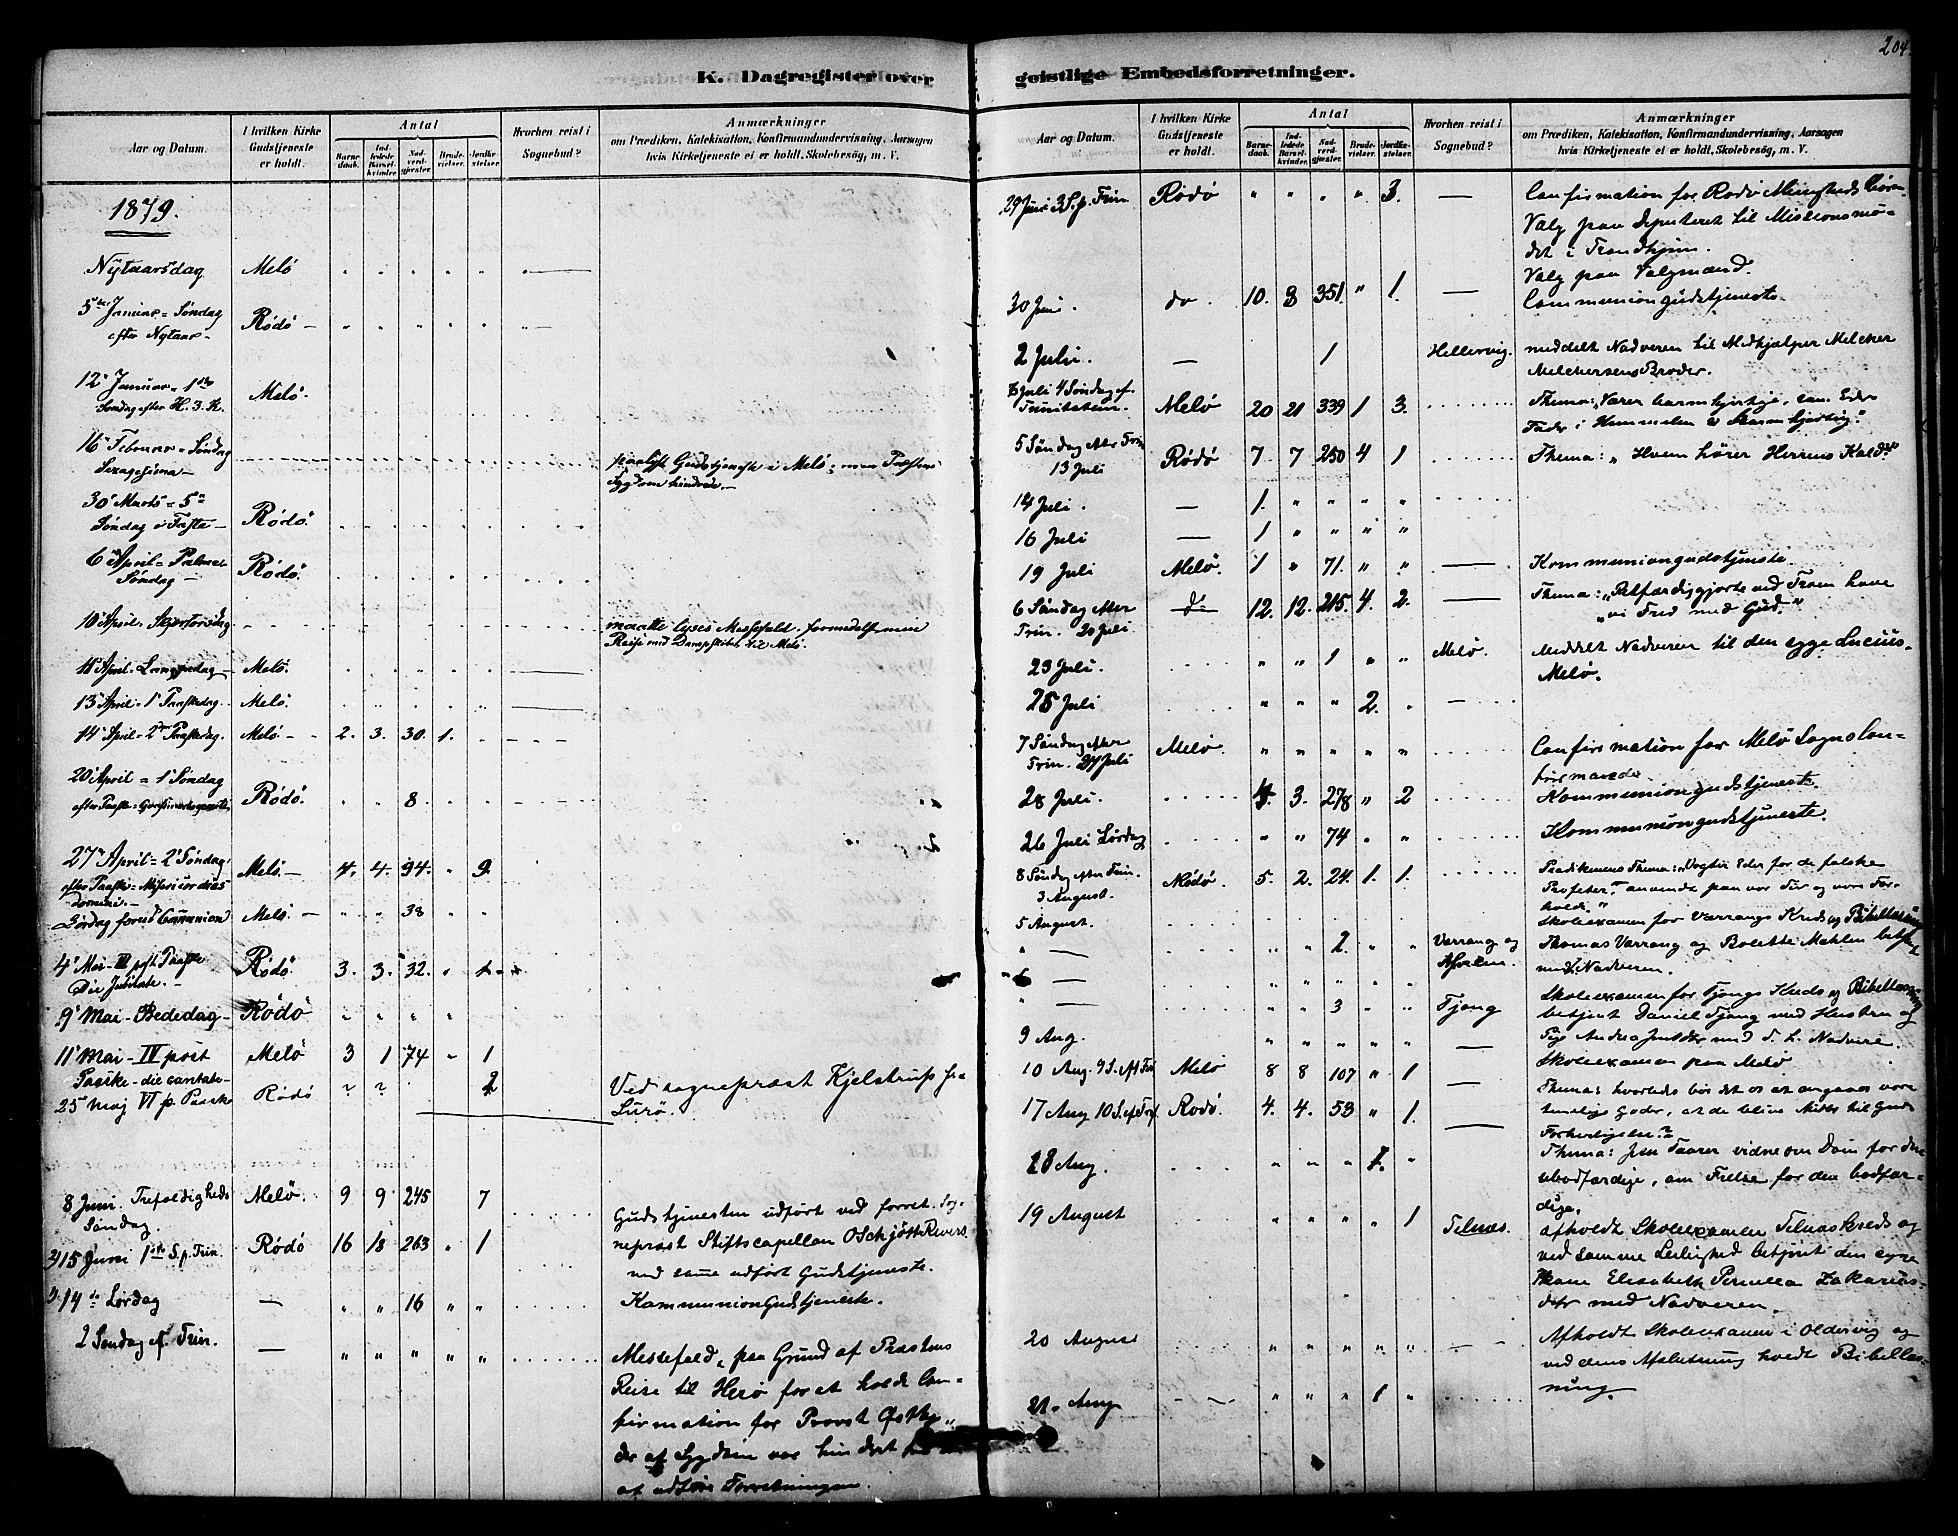 204
K. Dagregister over
geistlige Embedsforretninger.
Aar og Datum.
I hvilken Kirke Gudstjeneste er holdt.
Antal
Barnedaab.
Indledede Barselkvinder
Nadverdgjester.
Brudevielser.
Jordfæstelser.
Hvorhen reist i Sognebud?
Anmærkninger
om Prædiken, Katekisation, Konfirmandundervisning, Aarsagen
hvis Kirketjeneste ei er holdt, Skolebesøg, m. V.
1879.
Nytaarsdag Melö " " " " "
5te Januar = Søndag efter Nytaar - Rödö - " " " " "
12 Januar = 1ste Søndag efter H. 3. K. Melö.
16 Februar = Søndag Sexagesima - Gudstjeneste i Melö; men Præstens Sygdom hindrede. -
30 Marts = 5 Søndag i Faste - Rödö.
6 April = Palme Søndag - Rödö.
10 April = Skjærtorsdag - maatte lyses Messefald formedelst min
Reise med Dampskibet til Melö.
11 April - Langfredag - Melö.
13 April = 1 Paaskedag - Melö.
14 April = 2 Paaskedag. Melö - 2. 3. 30. 1.
20 April = 1 Søndag efter Paaske Rödö. " " 8. "
27 April = 2 Søndag efter Paaske = Misericordias Domini. - Melö. - 4. 4. 94. " 9.
Lördag forud Communion Melö. - " " 38 " "
4 Mai - III post Paaske Die Jubilate. - Rödö. 3. 3. 32. "
9 Mai - Bededag - Rödö " " " "
11 Mai - IV post Paaske - die cantate - Melö 3 1 74 " 1
25 Maj VI p. Paaske Rödö ? ? 2 Ved sognepræst Kjelstrup fra
Lurø.
8 Juni Trefoldigheds Søndag. Melö. 9 9 245 7 Gudstjenesten udført ved forret. Sog-
nepræst Stiftscapellan O Schjött Revers.
15 Juni 1ste S. p. Trin. Rödö 16 18 263 " 1 ved samme udført Gudstjeneste.
14de Lørdag — " " 16 " " Kommunion Gudstjeneste.
2 Søndag ef. Trin. — " " " " " Messefald, paa Grund af Præstens
Reise til Herö for at holde Con-
firmation for Provst
der af Sygdom var hindret
at udføre Forretningen.
Aar og Datum.
I hvilken Kirke Gudstjeneste er holdt.
Antal
Barnedaab.
Indledede Barselkvinder.
Nadverdgjester.
Brudevielser.
Jordfæstelser.
Hvorhen reist i Sognebud?
Anmærkninger
om Prædiken, Katekisation, Konfirmandundervisning, Aarsagen
hvis Kirketjeneste ei er holdt, Skolebesög, m. V.
29 Juni 3 S. p. Trin. Rödö " " " " 3. — Confirmation for Rödö Menigheds Börn.
Valg paa Deputeret til Missionsmö-
det i Trondhjem.
Valg paa Valgmænd.
30 Juni. do. 10. 8 351. " 1. — Communiongudstjeneste.
2 Juli. — 1 Hellervig. meddelt Nadveren til Medhjælper Melcher
Melchersens Broder.
6 Juli 4 Søndag ef. Trinitatem. Melö 20 21 339 1 3. Thema: "Værer barmhjertige, som Eders
Fader i Himmelen er barmhjertig".
5 Søndag efter Trin. 13 Juli Rödö 7 7 250 4 1 Thema: "Hvem hører Herrens Kald?"
14 Juli. — 1. " " " "
16 Juli — 1 " " " "
19 Juli Melö. 1 " 71. " " — Kommuniongudstjeneste.
6 Søndag efter Trin. 20 Juli do 12. 12. 215. 4. 2. — Thema: "Retfærdiggjorte ved Troen have
vi Fred med Gud."
23 Juli. " " 1 " " Melö. Meddelt Nadveren til den syge Lucius
Melö.
25 Juli " " " 2. " —
7 Søndag efter Trin. 27 Juli Melö. " " " " " Confirmation for Melö Sogns Con-
firmander.
28 Juli. 4. 3. 278 " 2 Kommuniongudstjeneste.
26 Juli Lørdag " " 74 " " Kommuniongudstjeneste.
8 Søndag efter Trin. 3 August. Rödö. 5. 2. 24. 1. 1. Prædikenens Thema: "Vogter Eder for de falske
Profeter", anvendt paa vor Tid og vore For-
holde."
5 August. Skoleexamen for Værrangs Kreds og Bibellæsning
" — " " 2 " " Værrang og Thomas Værrang og Bolette Mehlen betjent
med Nadveren.
6 — " " " " " Skoleexamen for Tjongs Kreds og Bibellæsning
" — " " 3 " " Tjong betjent Daniel Tjong med Hustru og
Pige Andrea med d. h. Nadvere.
9 Aug. " " " " " — Skoleexamen paa Melö.
10 Aug. 9 S. ef Tri. Melö 8 8 107 " 1 — Thema: hvorledes bör det os at omgaaes vore
timelige Goder, at de blive Midler til Guds
Forherligelse?
17 Aug 10 S. ef Tri. Rödö. 4. 4. 53 " 1. — Thema: Jesu Taarer vidne om Dom for den
ubodfærdige, om Frelse for den bodfær-
dige.
18 Aug. " " " 1. "
19 August " " " " 1 Telnæs. Afholdt Skoleexamen Telnæs Kreds og
ved samme Leilighed betjent den syge
Kone Elisabeth Pernella Zakarias-
dtr med Nadveren.
20 August " " " " " — Afholdt Skoleexamen i Oldervig og
ved dens Afslutning holdt Bibellæs-
ning.
21. Aug — " " " 1 "